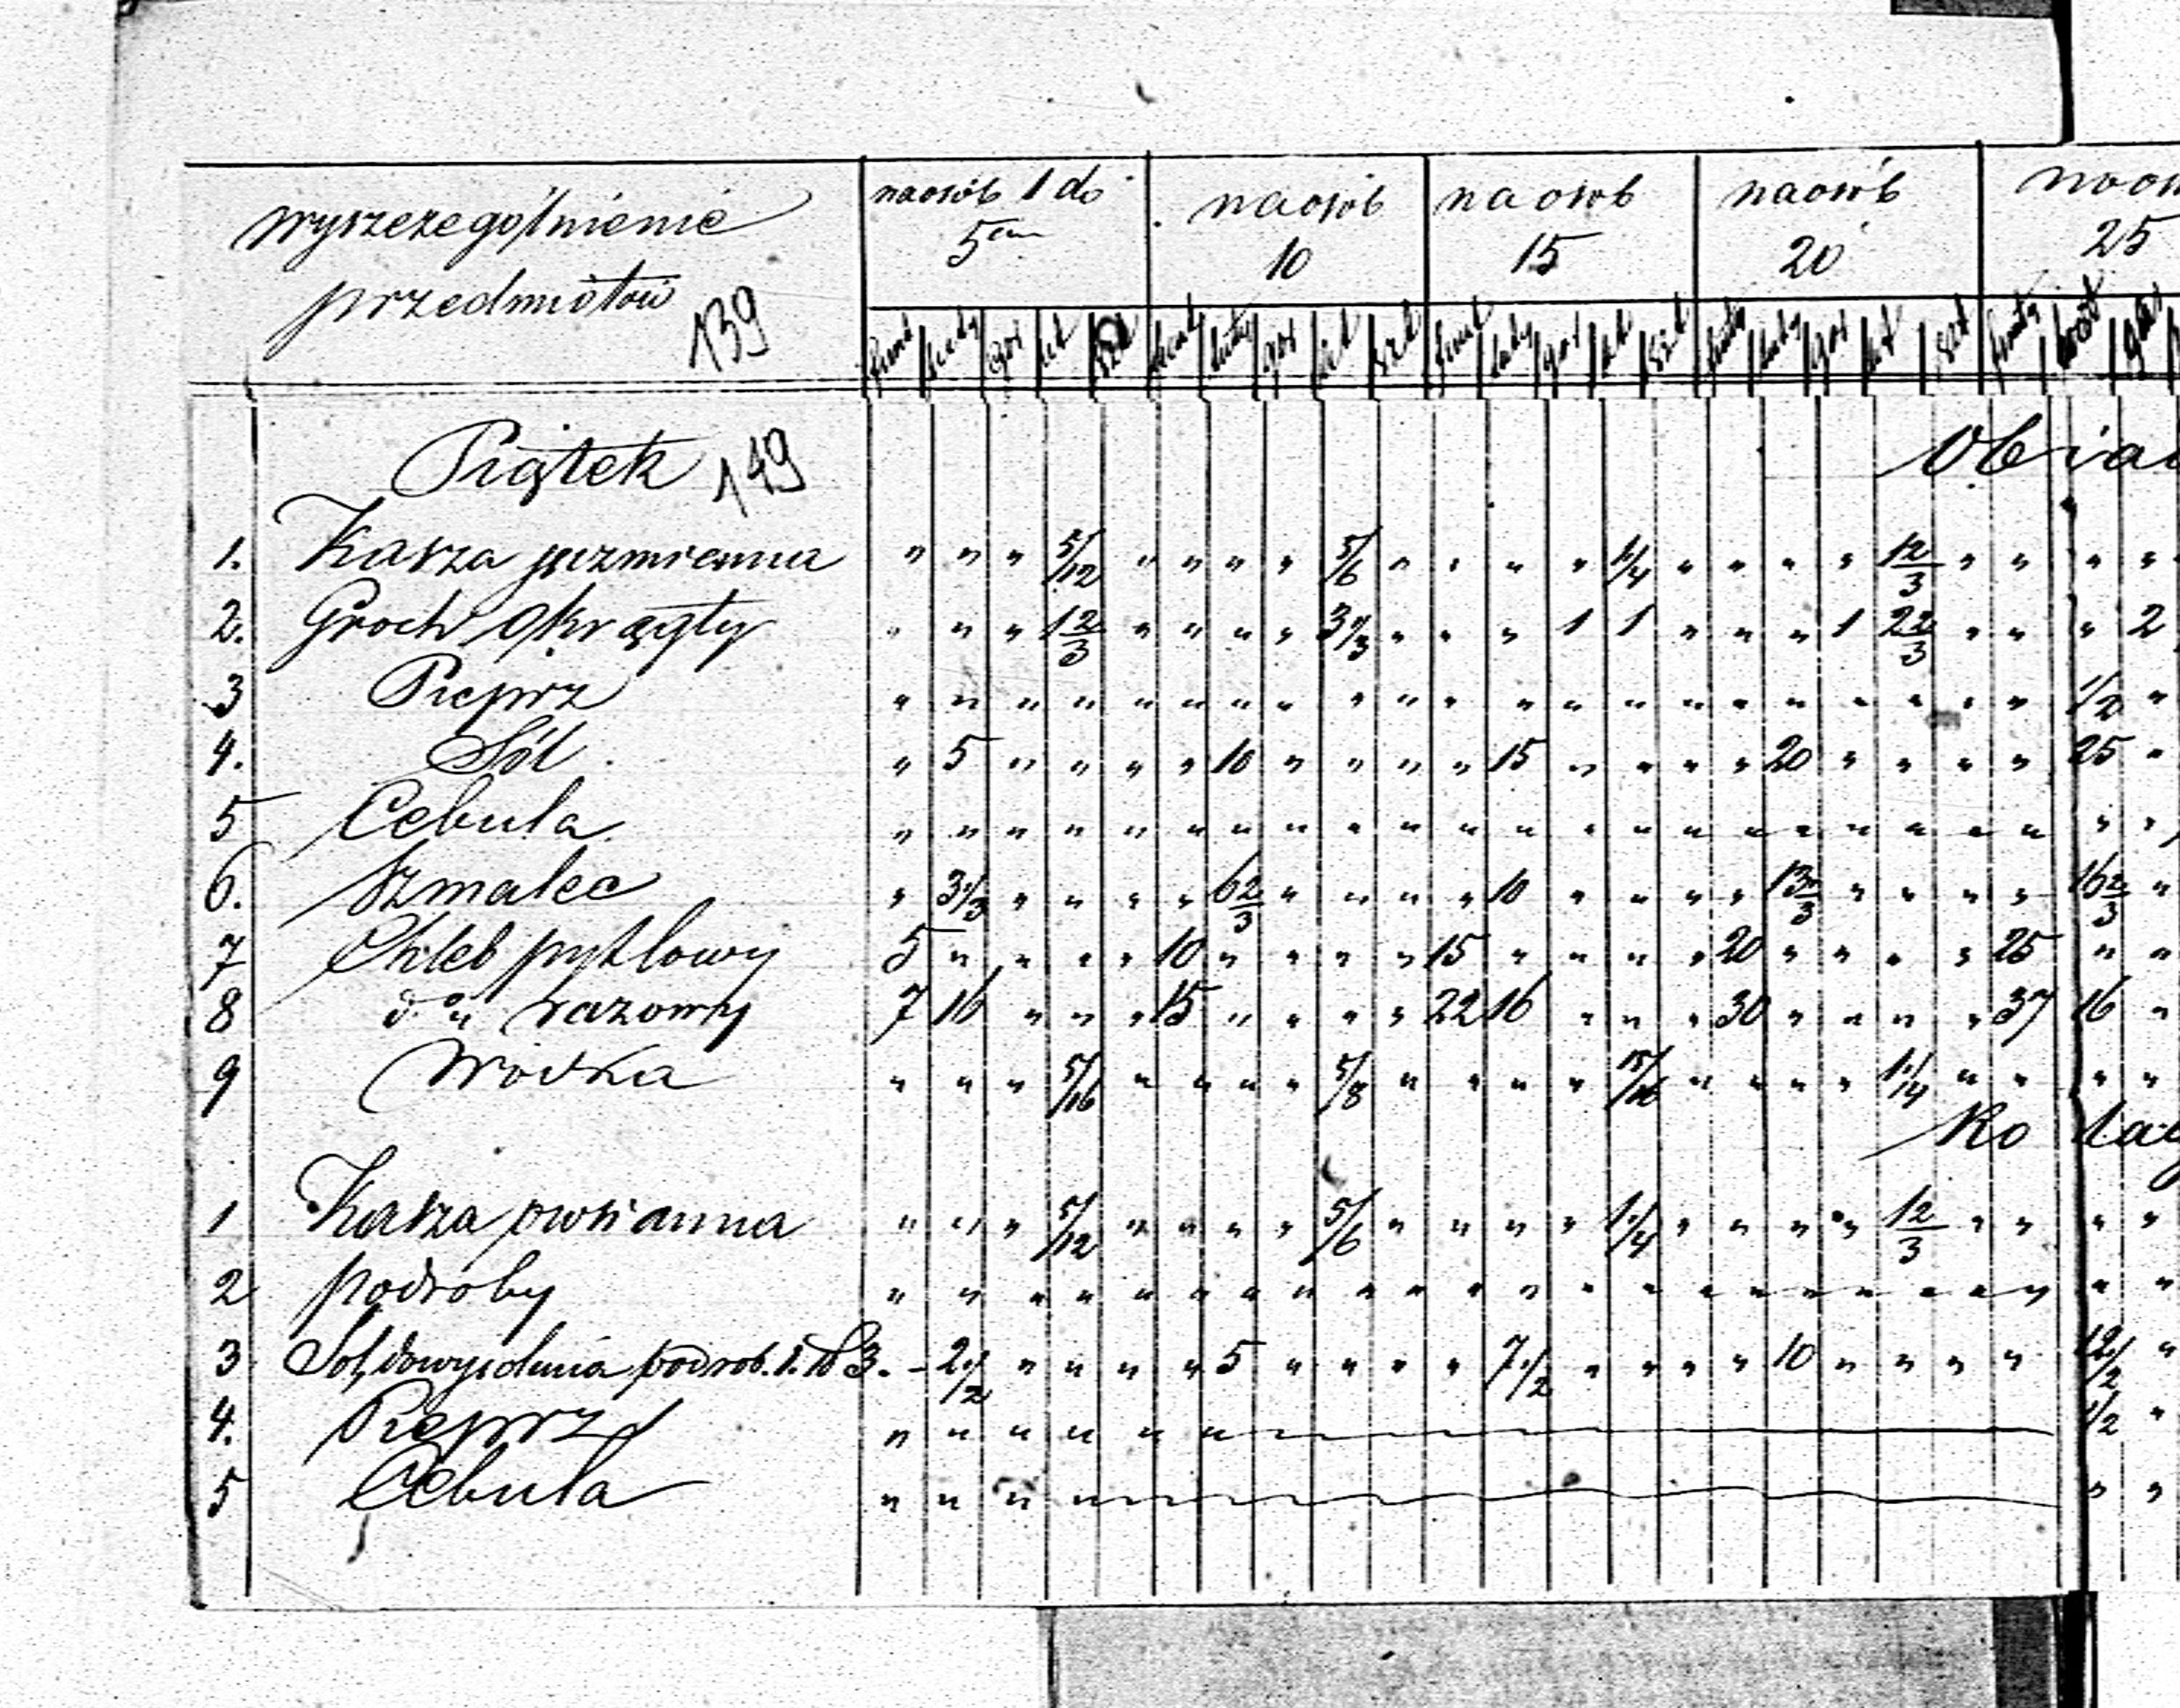 wyszczególnienie przedmiotów 139
na osób 1 do 5ciu
na osób 10
na osób 15
na osób 20
25
funt łuty gar kwt szt
Piątek 149 Obia
1. Kasza jęczmienna " " " 5/12 " " " " 5/6 " " " " 1 1/4 " " " " 1 2/3 " " " "
2. Groch okrągły " " " 1 2/3 " " " " 3 1/3 " " " 1 1 " " " 1 2 2/3 " " " 2
3 Pieprz " " " " " " " " " " " " " " " " " " " " " 1/2 "
4. Sól " 5 " " " " 10 " " " " 15 " " " " 20 " " " " 25 "
5 Cebula " " " " " " " " " " " " " " " " " " " " " " "
6. Szmalec " 3 1/3 " " " " 6 2/3 " " " " 10 " " " " 13 1/3 " " " " 16 2/3 "
7 Chleb pytlowy 5 " " " " 10 " " " " 15 " " " " 20 " " " " 25 " "
8 d-o razowy 7 16 " " " 15 " " " " 22 16 " " " 30 " " " " 37 16 "
9 Wódka " " " 5/16 " " " " 5/8 " " " " 15/16 " " " " 1 1/4 " " " "
Ko lac
1 Kasza owsianna " " " 5/12 " " " " 5/6 " " " " 1 1/4 " " " " 1 2/3 " " " "
2 podroby " " " " " " " " " " " " " " " " " " " " " " "
3 Sól, podrob. 3. - 2 1/2 " " " " 5 " " " " 7 1/2 " " " " 10 " " " " 12 1/2 "
4. Pieprz " " " " " " 1/2 "
5 Cebula " " " " " "